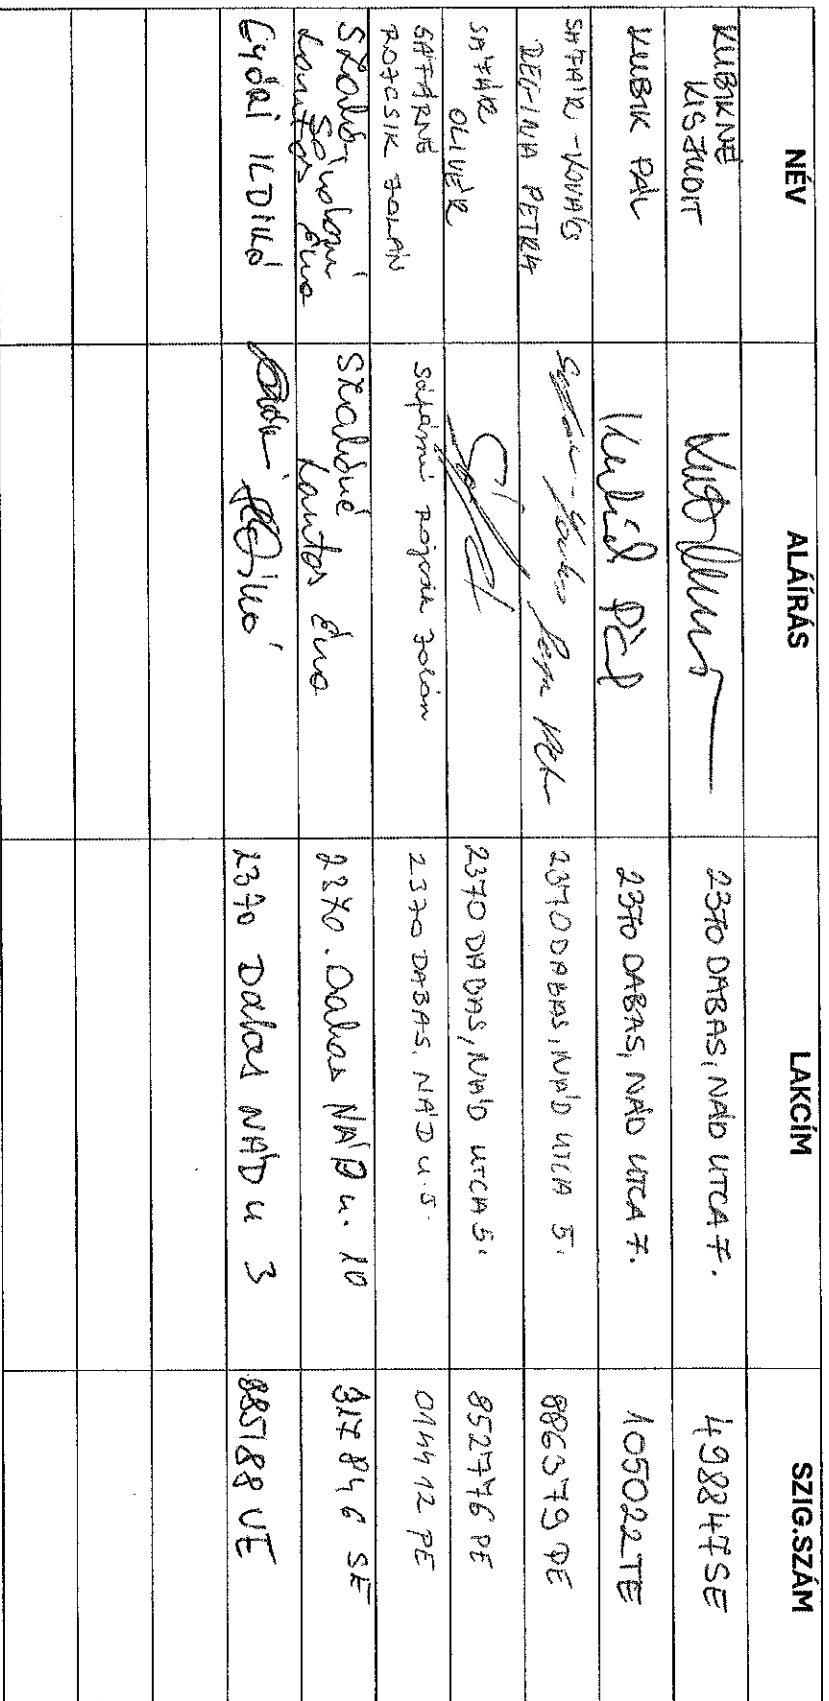 NÉV ALÁÍRÁS LAKCÍM SZIG.SZÁM
KUBIKNÉ
KIS JUDIT
2370 DABAS, NÁD UTCA 7.
498847SE
KUBIK PÁL
Kubik Pál
2370 DABAS, NÁD UTCA 7.
105022TE
SAFÁR-KOVÁCS
REGINA PETRA
2370 DABAS, NÁD UTCA 5.
886379 PE
SAFÁR
OLIVÉR
2370 DABAS, NÁD UTCA 5.
852776 PE
SAFÁRNÉ
ROJCSIK ZOLÁN
Safárné Rojcsik Zolán
2370 DABAS, NÁD U. 5.
014412 PE
Lantos Éva
Lantos Éva
2370. Dabas NÁD u. 10
317846 SE
Győri ILDIKÓ
Győri Ildikó
2370 Dabas NÁD u 3
885188 UE